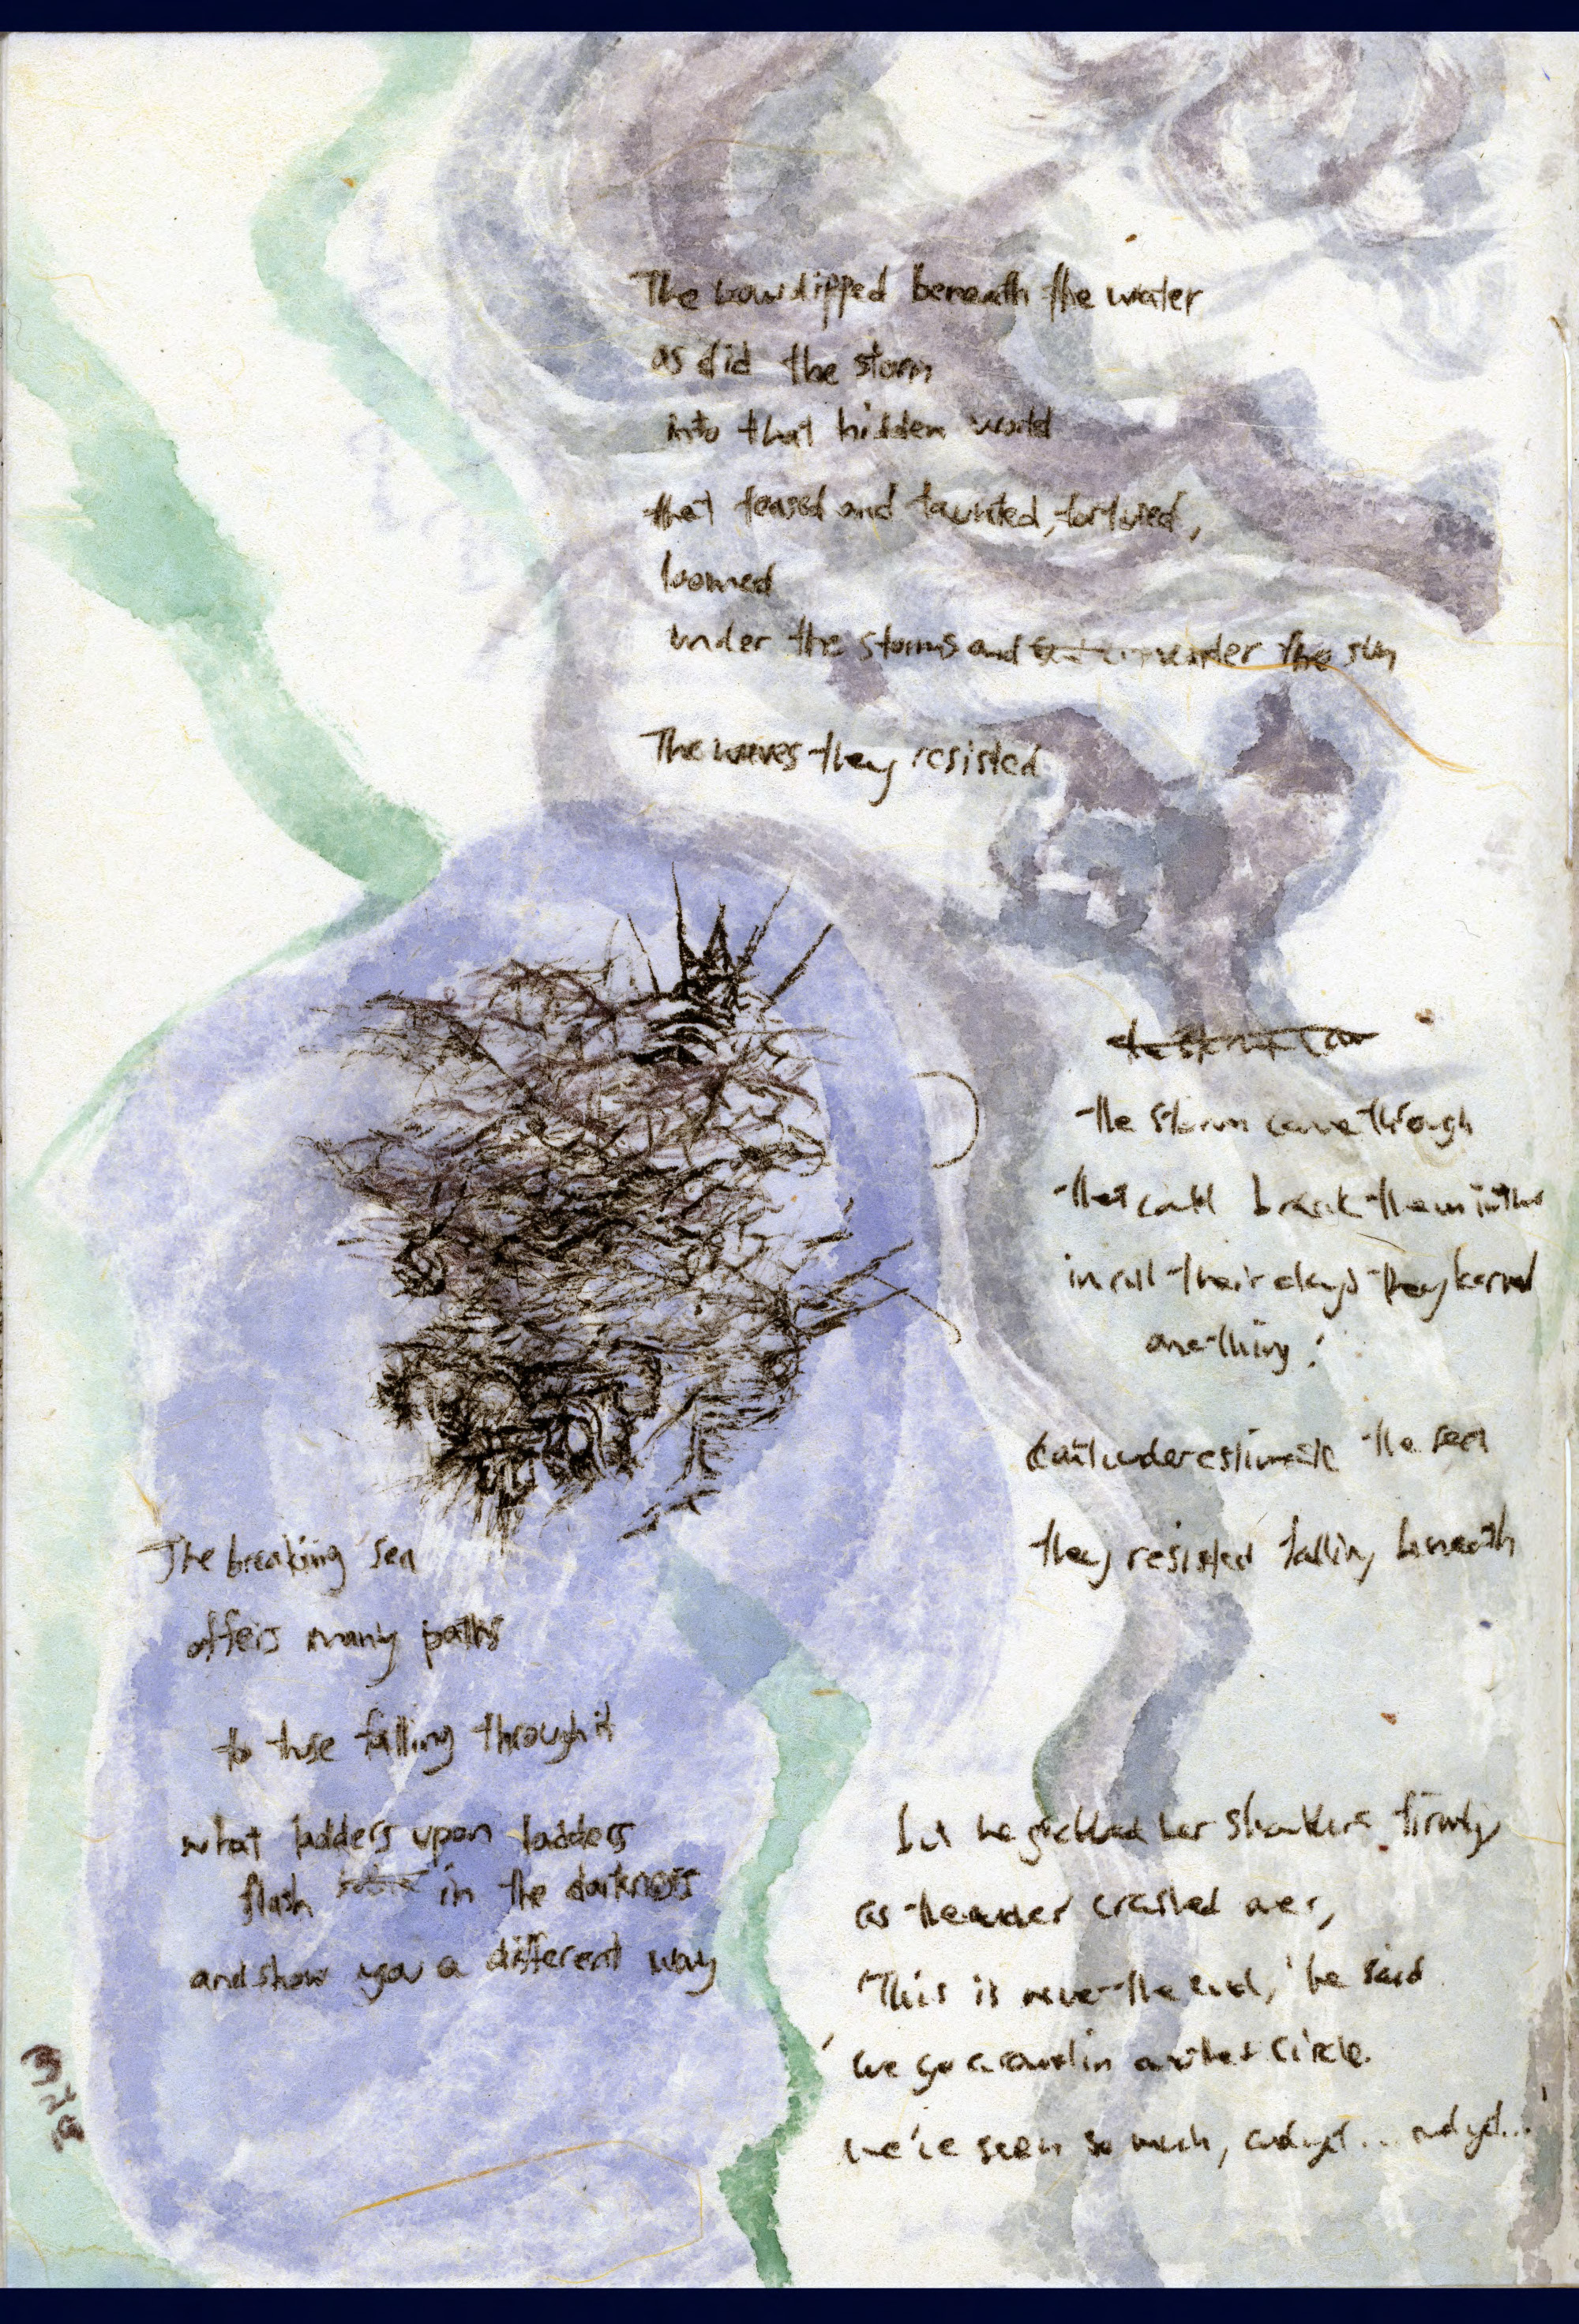 The bow dipped beneath the water
as did the storm
into that hidden world
that teased and taunted, tortured,
loomed
under the storms and under the sun
The waves they resisted
the storm
the storm came through
that could break them
in all their days they learned
one thing:
can't underestimate the sea
they resisted falling beneath
The breaking sea
offers many paths
to those falling through it
what ladders upon ladders
flash in the darkness
and show you a different way
but he grabbed her shoulders firmly
as the water crashed over,
'This is never the end,' he said
'we go around in another circle.
we've seen so much, and yet... and yet...'